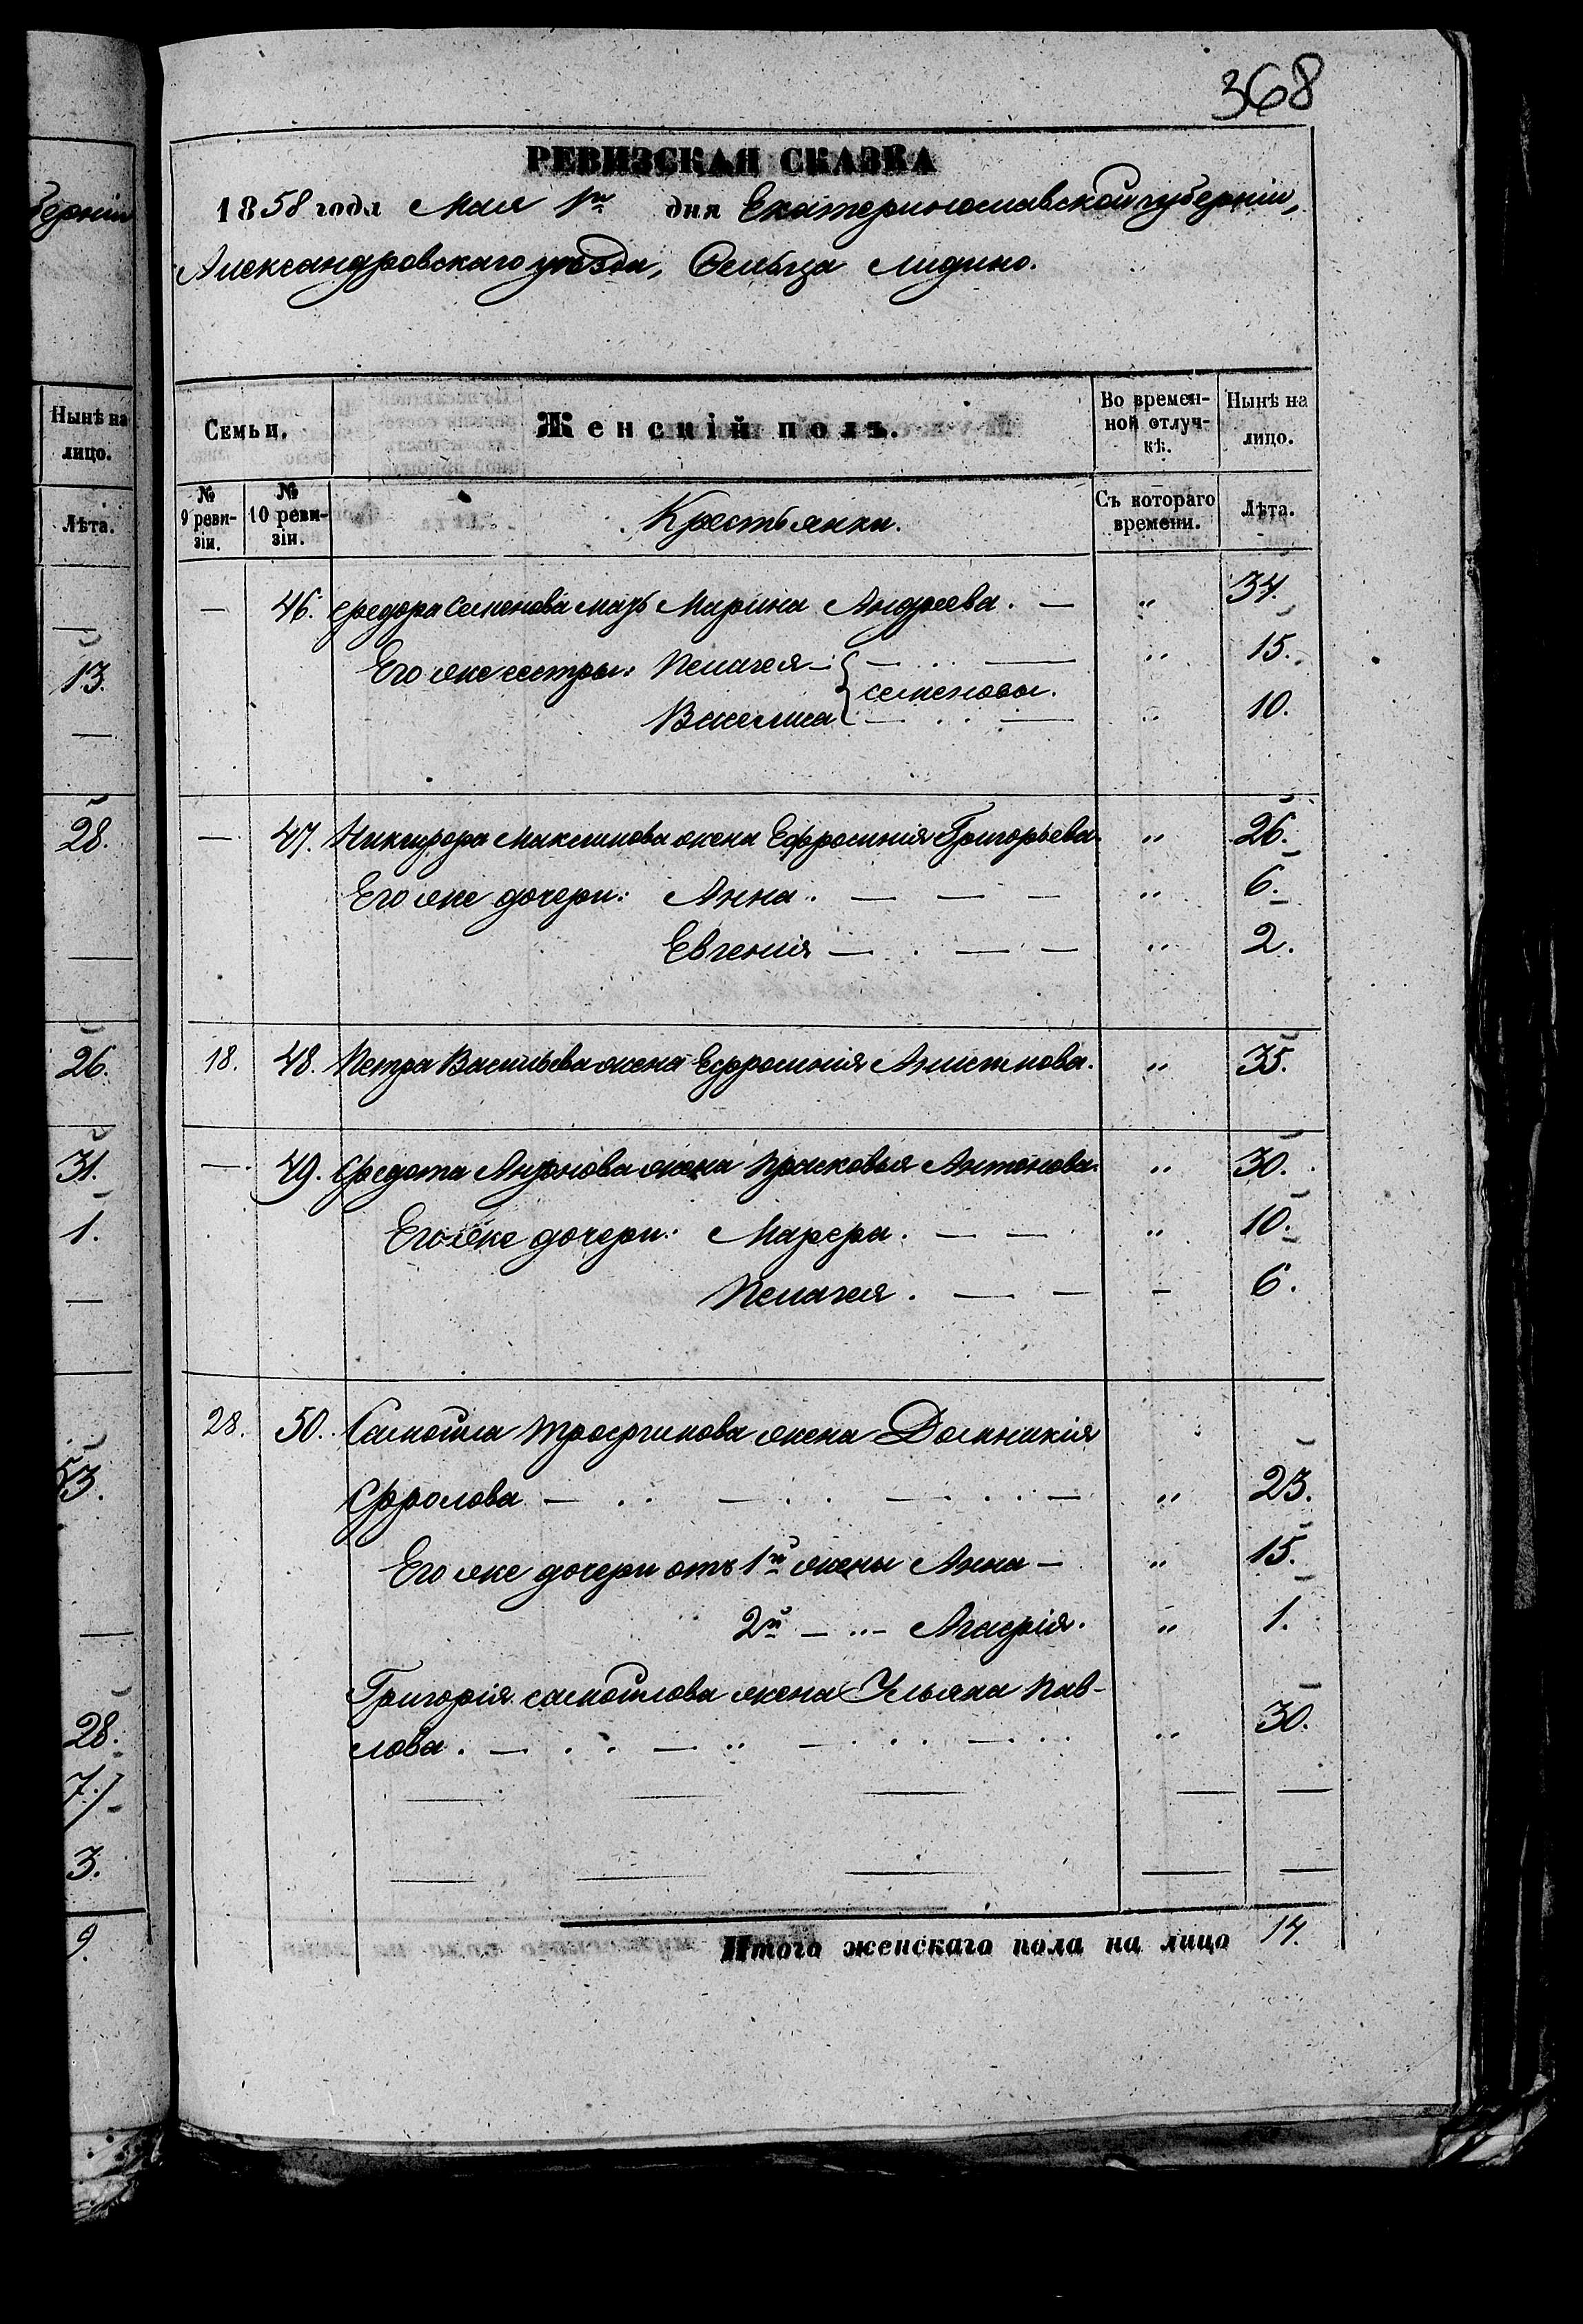 368
РЕВИЗСКАЯ СКАЗКА
1858 года Мая 1го дня Екатеринославской губерніи,
Александровскаго уѣзда, Сельца Лидино.
Семьи.
Женскій полъ.
Во времен-
ной отлуч-
кѣ.
Нынѣ на
лицо.
№
9 реви-
зіи.
№
10 реви-
зіи.
Крестьянки.
Съ котораго
времени.
Лѣта.
— 46. Федора Семенова мать Марина Андреева. — „ 34.
Его же сестры: Пелагея — „ 15.
Семеновы.
Василиса — „ 10.
— 47. Никифора Максимова жена Ефросинія Григорьева. „ 26.
Его же дочери: Анна. — — — „ 6.
Евгенія — — — „ 2.
18. 48. Петра Васильева жена Ефросинія „ 35.
— 49. Федота жена Прасковья Антонова. „ 30.
Его же дочери: Марфа. — — „ 10.
Пелагея. — — – 6.
28. 50. Самойла Трофимова жена Домникія
Фролова — — — — „ 23.
Его же дочери отъ 1й жены Анна — „ 15.
2й — „ — Агафія. „ 1.
Григорія Самойлова жена Ульяна Пав-
лова. — — „ — — „ 30.
Итого женскаго пола на лицо 14.
губерніи
Нынѣ на
лицо.
Лѣта.
—
13.
—
28.
—
26.
31.
1.
—
53.
—
28.
7.
3.
9.